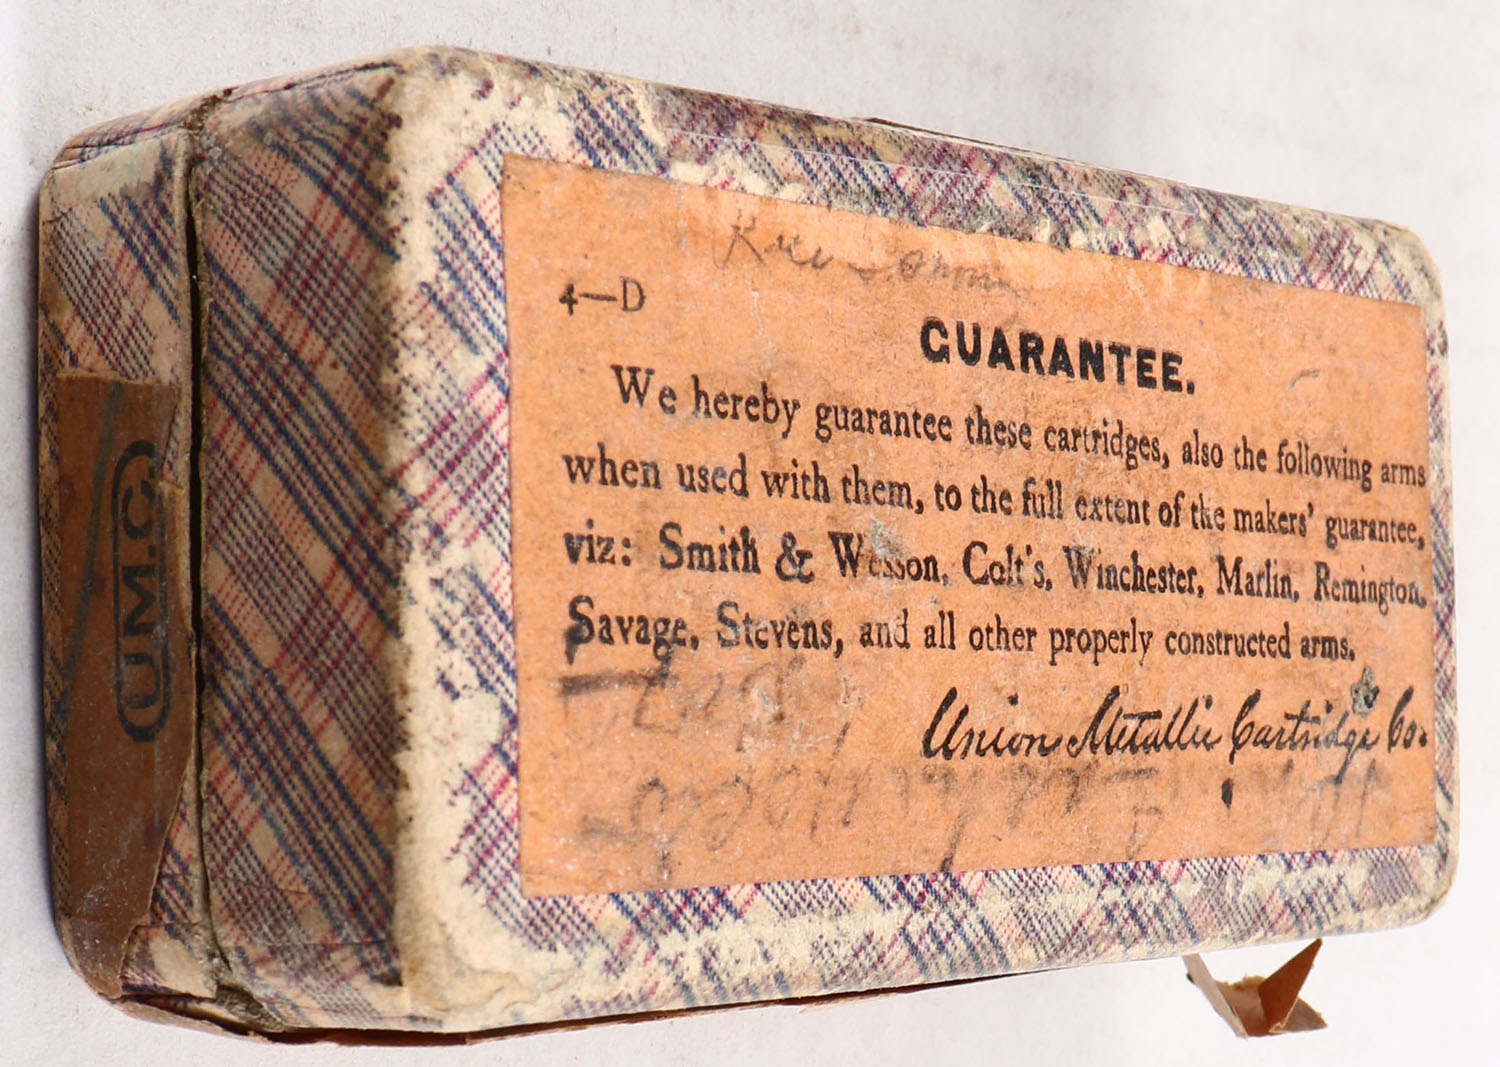 4—D
GUARANTEE.
We hereby guarantee these cartridges, also the following arms
when used with them, to the full extent of the makers' guarantee,
viz: Smith & Wesson, Colt's, Winchester, Marlin, Remington,
Savage, Stevens, and all other properly constructed arms.
Union Metallic Cartridge Co.
U.M.C.